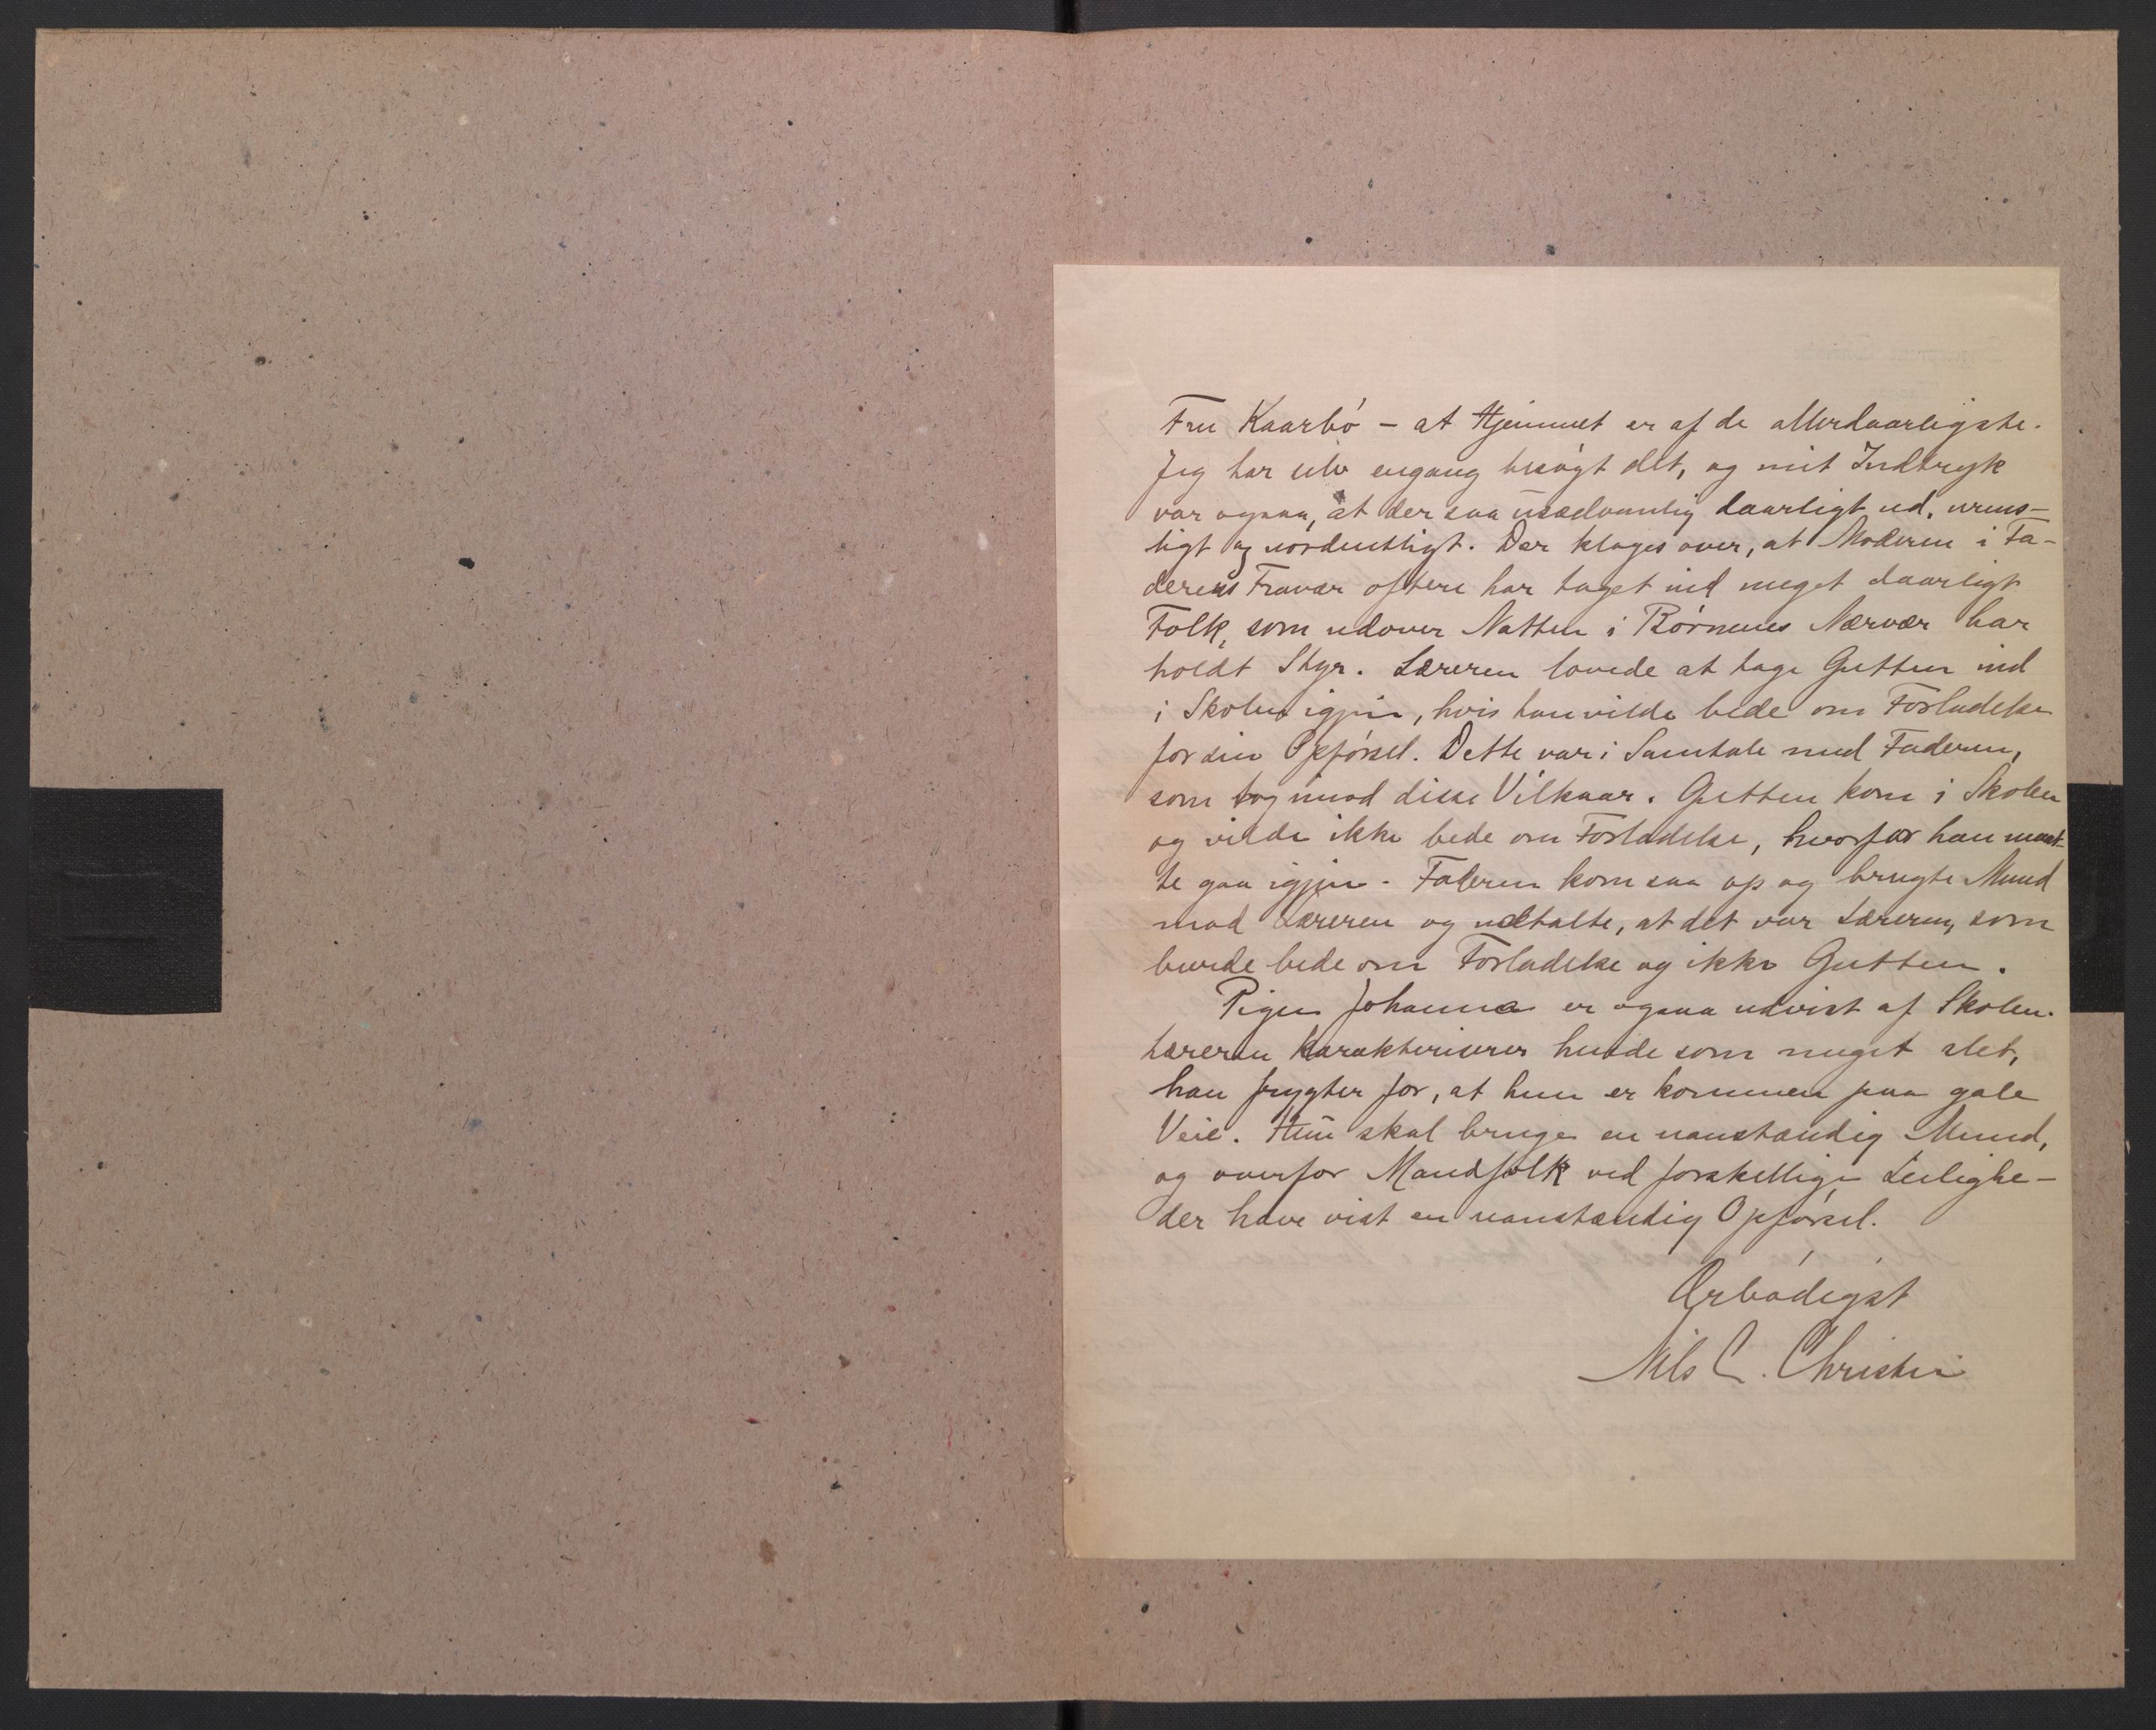 Fru Kaarbó – at Hjemmet er af de allerdaarligste.
Jeg har selv engang besógt det, og mit Indtryk
var ogsaa, at der saa usædvanlig daarligt ud, urens-
ligt og uordentligt. Der klages over, at Moderen i Fa-
derens Fravær oftere har taget ind meget daarligt
Folk, som udover Natten i Bórnenes Nærvær har
holdt Styr. Læreren lovede at tage Gutten ind
i Skolen igjen, hvis han vilde bede om Forladelse
for sin Opfórsel. Dette var i Samtale med Faderen,
som tog imod disse Vilkaar. Gutten kom i Skolen
og vilde ikke bede om Forladelse, hvorfor han maat-
te gaa igjen. Faderen kom saa op og brugte Mund
mod Læreren og udtalte, at det var Læreren, som
burde bede om Forladelse og ikke Gutten.
Pigen Johanna er ogsaa udvist af Skolen.
Læreren karakteriserer hende som meget slet,
han frygter for, at hun er kommen paa gale
Veie. Hun skal bruge en uanstændig Mund,
og overfor Mandfolk ved forskellige Leilighe-
der have vist en uanstændig Opfórsel.
Ærbódigst
Nils C. Christie